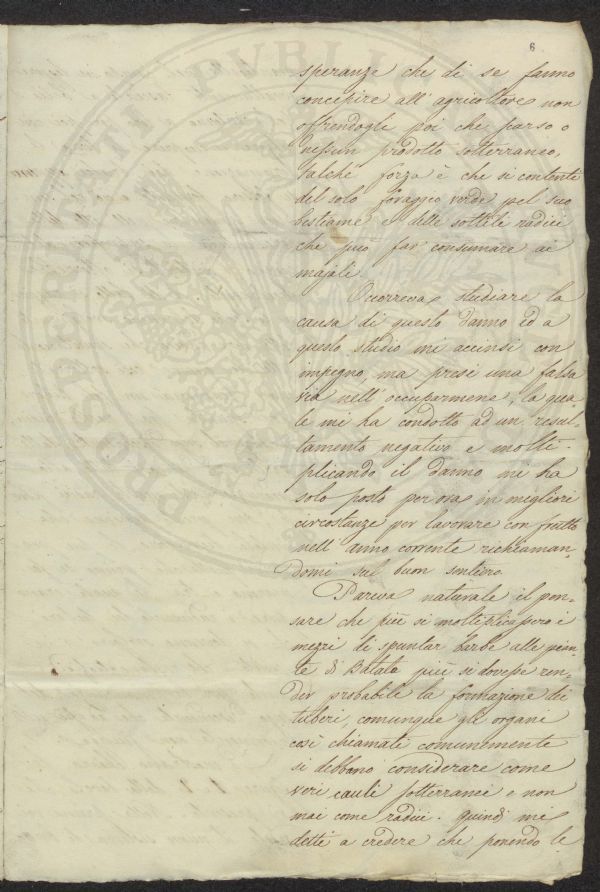 6
speranze che di se fanno
concepire all'agricoltore non
offrendogli poi che scarso o
nessun prodotto sotterraneo,
talchè forza è che si contenti
del solo foraggio verde pel suo
bestiame e delle sottili radici
che può far consumare ai
majali.
Occorreva studiare la
causa di questo danno ed a
questo studio mi accinsi con
impegno, ma presi una falsa
via nell'occuparmene, la qua-
le mi ha condotto ad un resul-
tamento negativo e molti-
plicando il danno mi ha
solo posto per ora in migliori
circostanze per lavorare con frutto
nell'anno corrente richiaman-
domi sul buon sentiero.
Pareva naturale il pen-
sare che più si moltiplicassero i
mezzi di spuntar barbe alle pian-
te di Batata più si dovesse ren-
der probabile la formazione dei
tuberi, comunque gli organi
così chiamati comunemente
si debbono considerare come
veri cauli sotterranei e non
mai come radici. Quindi mi
detti a credere che ponendo le
PROSPERITATI PVBLICAE